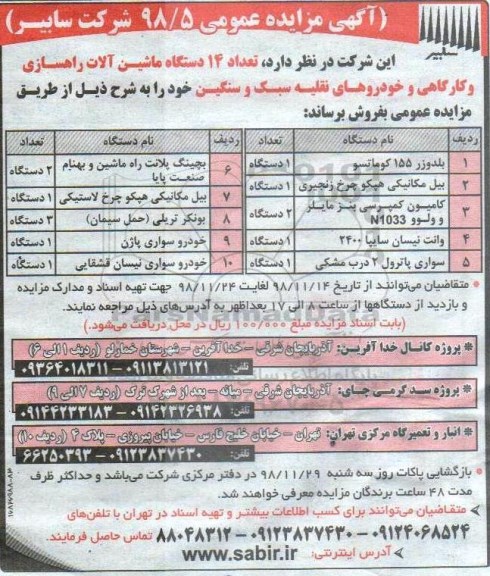 (آگهی مزایده عمومی ۹۸/۵ شرکت سابیر)
سابیر
این شرکت در نظر دارد، تعداد ۱۴ دستگاه ماشین آلات راهسازی
وکارگاهی و خودروهای نقلیه سبک و سنگین خود را به شرح ذیل از طریق
مزایده عمومی بفروش برساند:
ردیف نام دستگاه تعداد
۱ بلدوزر ۱۵۵ کوماتسو ۱ دستگاه
۲ بیل مکانیکی هپکو چرخ زنجیری ۱ دستگاه
۳ کامیون کمپرسی بنز مایلر و ولوو N1033 ۲ دستگاه
۴ وانت نیسان سایپا ۲۴۰۰ ۱ دستگاه
۵ سواری پاترول ۲ درب مشکی ۱ دستگاه
ردیف نام دستگاه تعداد
۶ بچینگ پلانت راه ماشین و بهنام صنعت پایا ۲ دستگاه
۷ بیل مکانیکی هپکو چرخ لاستیکی ۱ دستگاه
۸ بونکر تریلی (حمل سیمان) ۳ دستگاه
۹ خودرو سواری پاژن ۱ دستگاه
۱۰ خودرو سواری نیسان قشقایی ۱ دستگاه
• متقاضیان می‌توانند از تاریخ ۹۸/۱۱/۱۴ لغایت ۹۸/۱۱/۲۴ جهت تهیه اسناد و مدارک مزایده
و بازدید از دستگاهها از ساعت ۸ الی ۱۷ بعداظهر به آدرس‌های ذیل مراجعه نمایند.
(بابت اسناد مزایده مبلغ ۱۰۰/۰۰۰ ریال در محل دریافت می‌شود.)
* پروژه کانال خدا آفرین: آذربایجان شرقی – خدا آفرین – شهرستان خمارلو (ردیف ۱ الی ۶)
تلفن: ۰۹۱۱۳۸۱۳۱۲۱ – ۰۹۳۶۴۰۱۸۳۱۱
* پروژه سد گرمی چای: آذربایجان شرقی – میانه – بعد از شهرک ترک (ردیف ۷ الی ۹)
تلفن: ۰۹۱۴۲۳۷۶۹۳۸ – ۰۹۱۴۴۲۳۳۱۸۳
* انبار و تعمیرگاه مرکزی تهران: تهران – خیابان خلیج فارس – خیابان پیروزی – پلاک ۴ (ردیف ۱۰)
تلفن: ۰۹۱۲۳۸۳۷۴۳۰ – ۶۶۲۵۰۳۹۳
• بازگشایی پاکات روز سه شنبه ۹۸/۱۱/۲۹ در دفتر مرکزی شرکت می‌باشد و حداکثر ظرف
مدت ۴۸ ساعت برندگان مزایده معرفی خواهند شد.
متقاضیان می‌توانند برای کسب اطلاعات بیشتر و تهیه اسناد در تهران با تلفن‌های
۰۹۱۲۴۰۶۸۵۲۴ – ۰۹۱۲۳۸۳۷۴۳۰ – ۸۸۰۴۸۳۱۲ تماس حاصل فرمایند.
آدرس اینترنتی: www.sabir.ir